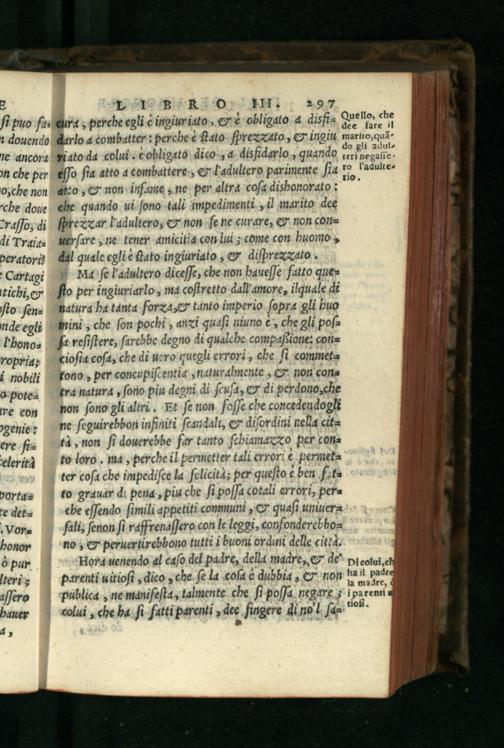 LIBRO III. 297
cura, perche egli è ingiuriato, & è obligato a disfi-
darlo a combatter: perche è stato sprezzato, & ingiu
riato da colui. è obligato dico, a disfidarlo, quando
esso sia atto a combattere, & l'adultero parimente sia
atto, & non infame, ne per altra cosa dishonorato:
che quando ui sono tali impedimenti, il marito dee
sprezzar l'adultero, & non se ne curare, & non con-
uersare, ne tener amicitia con lui; come con huomo,
dal quale egli è stato ingiuriato, & disprezzato.
Ma se l'adultero dicesse, che non hauesse fatto que-
sto per ingiuriarlo, ma costretto dall'amore, ilquale di
natura ha tanta forza, & tanto imperio sopra gli huo
mini, che son pochi, anzi quasi niuno è, che gli pos-
sa resistere, sarebbe degno di qualche compassione: con-
ciosia cosa, che di uero quegli errori, che si commet-
tono, per concupiscentia, naturalmente, & non con-
tra natura, sono piu degni di scusa, & di perdono, che
non sono gli altri. Et se non fosse che concedendogli
ne seguirebbon infiniti scandali, & disordini nella cit-
tà, non si douerebbe far tanto schiamazzo per con-
to loro. ma, perche il permetter tali errori è permet-
ter cosa che impedisce la felicità; per questo è ben fat-
to grauar di pena, piu che si possa cotali errori, per-
che essendo simili appetiti communi, & quasi uniuer-
sali, senon si raffrenassero con le leggi, confonderebbo-
no, & peruertirebbono tutti i buoni ordini delle città.
Hora uenendo al caso del padre, della madre, & de'
parenti uitiosi, dico, che se la cosa è dubbia, & non
publica, ne manifesta, talmente che si possa negare;
colui, che ha si fatti parenti, dee fingere di no'l sa-
Quello, che
dee fare il
marito, quā-
do gli adul-
teri negasse-
ro l'adulte-
rio.
Di colui, ch
ha il padre
la madre,
i parenti
tiosi.
E
si puo fa-
n douendo
ne ancora
on che per
no, che non
rche doue
Crasso, di
di Traia-
peratori
Cartagi
ntichi, &
osto sen-
onde egli
l'hono-
ropria;
i nobili
o pote-
are con
ogenie:
ere fi-
celerità
porta-
te det-
. Vor-
honor
ò pur
lteri;
assero
hauer
a,